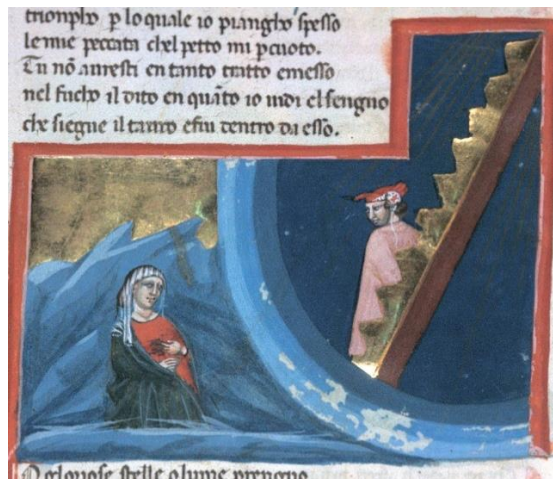 triumpho p lo quale io piangho spesso
le mie peccata chel petto mi pcuoto.
Tu nō auresti en tanto tratto e messo
nel fucho il dito en quāto io uidi el sengno
che siegue il tauro e fui dentro da esso.
O gloriose stelle o lume prengno